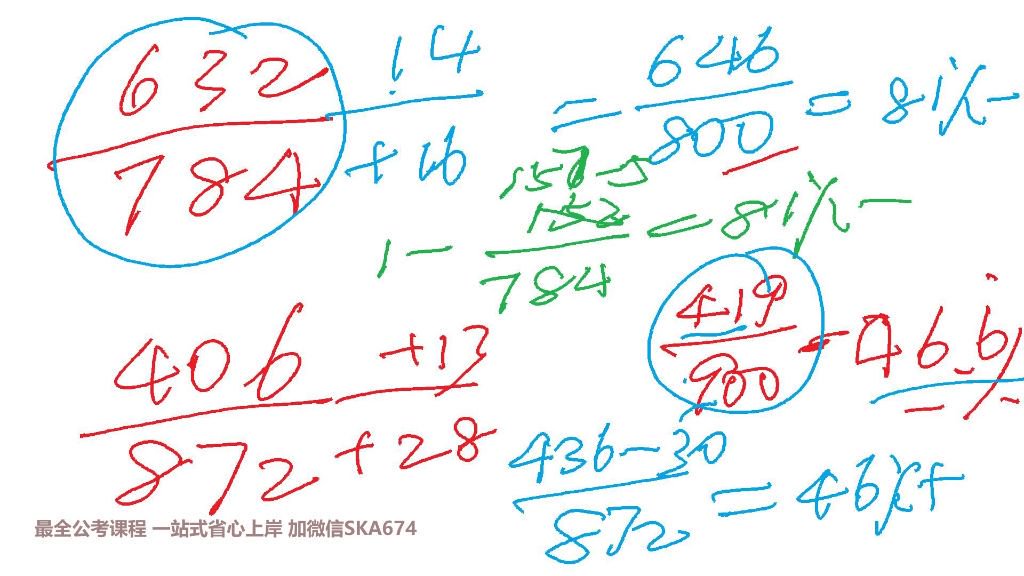 632/784 14/+16 = 646/800 = 81%-
1 - 157-5/784 = 81%-
152
406/872 +13/+28
419/900 = 46.6%
436-30/872 = 46%+
最全公考课程 一站式省心上岸 加微信SKA674